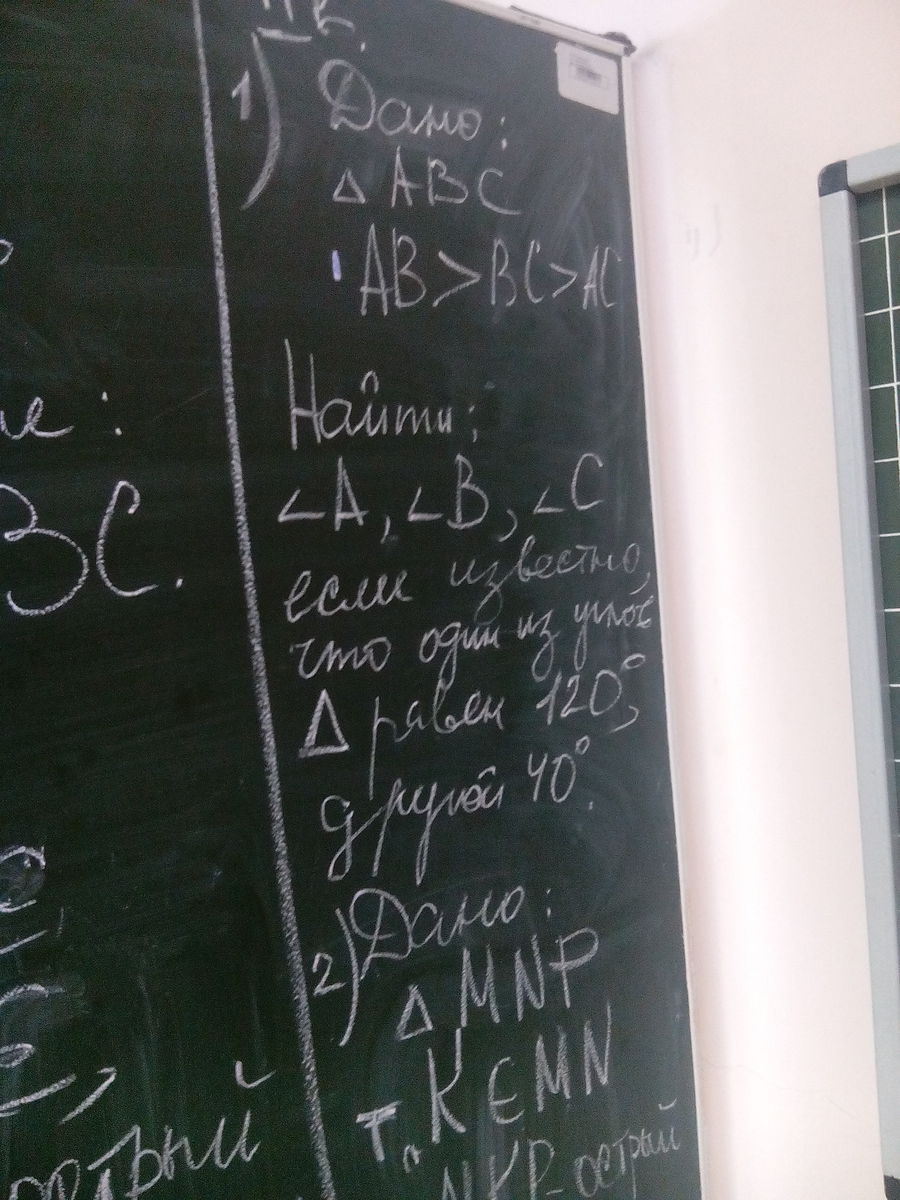 1) Дано:
△ ABC
AB > BC > AC
Найти:
∠A, ∠B, ∠C
если известно,
что один из углов
△ равен 120°,
другой 40°.
2) Дано:
△ MNP
т. K ∈ MN
NKP - острый
BC.
острый